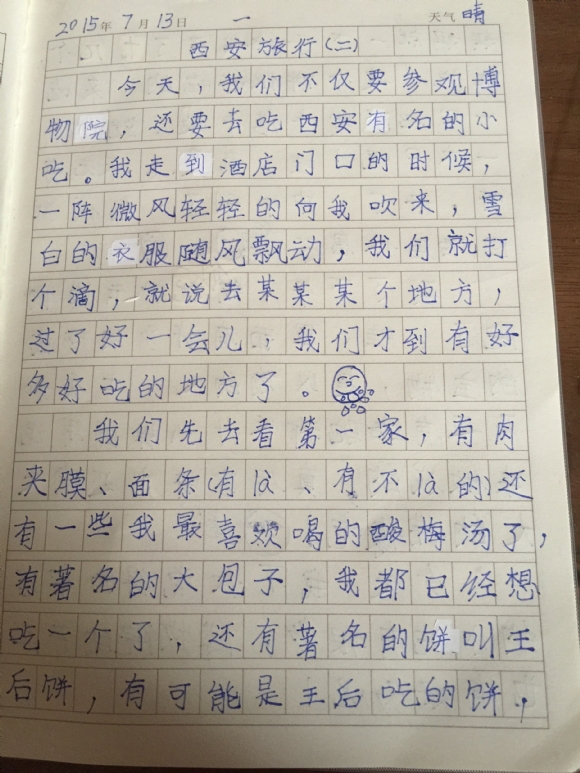 2015年7月13日 一 天气 晴
西安旅行(二)
今天，我们不仅要参观博
物院，还要去吃西安有名的小
吃。我走到酒店门口的时候，
一阵微风轻轻的向我吹来，雪
白的衣服随风飘动，我们就打
个滴，就说去某某某个地方，
过了好一会儿，我们才到有好
多好吃的地方了。
我们先去看第一家，有肉
夹膜、面条(有là、有不là的)还
有一些我最喜欢喝的酸梅汤了，
有著名的大包子，我都已经想
吃一个了，还有著名的饼叫王
后饼，有可能是王后吃的饼，